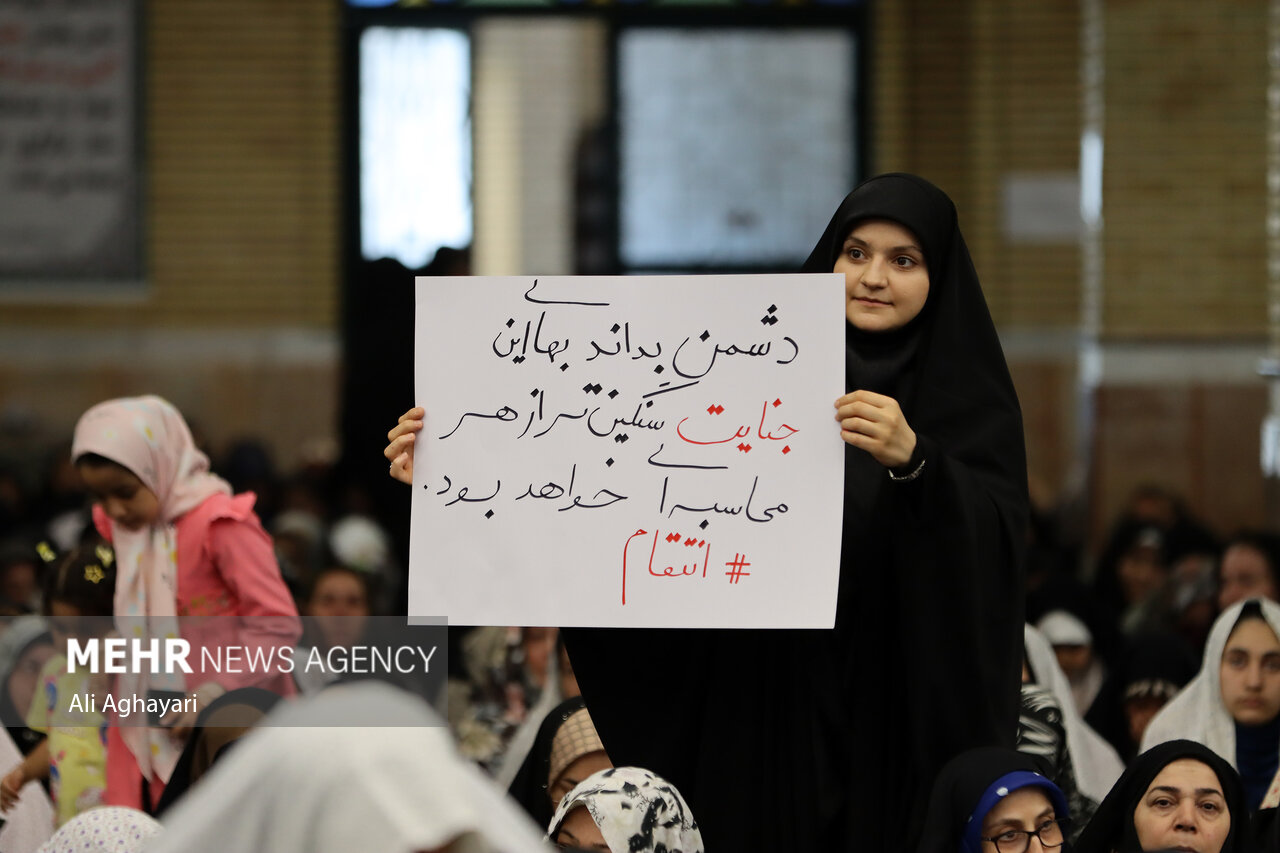 دشمن بداند بهای این
جنایت سنگین تر از هر
محاسبه ای خواهد بود.
# انتقام
MEHR NEWS AGENCY
Ali Aghayari